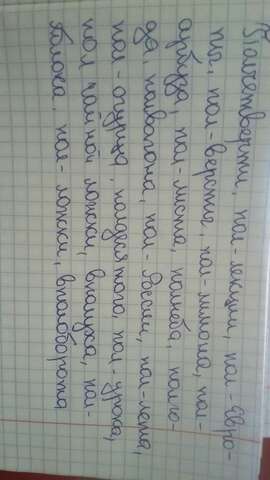 Полчетверти, пол-лекции, пол-Евро-
пы, пол-версты, пол-лимона, пол-
арбуза, пол-листа, полнеба, полго-
да, полвагона, пол-России, пол-лета,
пол-огурца, полдесятого, пол-урока,
пол чайной ложки, вполуха, пол-
яблока, пол-ложки, вполоборота